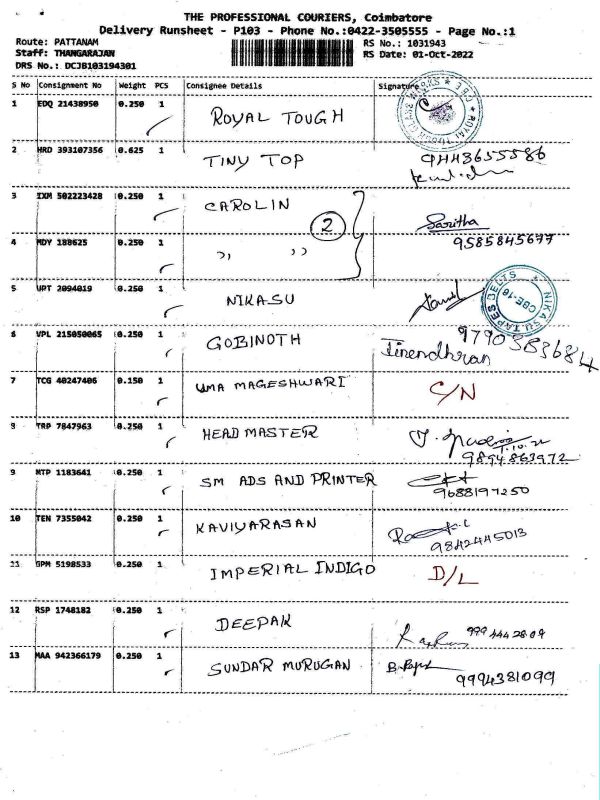 THE PROFESSIONAL COURIERS, Coimbatore
Delivery Runsheet - P103 - Phone No.:0422-3505555 - Page No.:1
Route: PATTANAM RS No.: 1031943
Staff: THANGARAJAN RS Date: 01-Oct-2022
DRS No.: DCJB103194301
S No Consignment No Weight PCS Consignee Details Signature
1 EDQ 21438950 0.250 1 ROYAL TOUGH
2 HRD 393107356 0.625 1 TINY TOP 9443655586
3 IXM 502223428 0.250 1 CAROLIN Saritha
2
4 MDY 188625 0.250 1 ,, ,, 9585845677
5 UPT 2094019 0.250 1 NIKASU
NIKASU TAPES BELTS CBE-18
6 VPL 215050065 0.250 1 GOBINOTH Jinendhran 9790383684
7 TCG 40247406 0.150 1 UMA MAGESHWARI C/N
8 TRP 7847963 0.250 1 HEAD MASTER
1.10.22
9894863972
9 MTP 1183641 0.250 1 SM ADS AND PRINTER
9688197250
10 TEN 7355042 0.250 1 KAVIYARASAN
9842445013
11 GPM 5198533 0.250 1 IMPERIAL INDIGO D/L
12 RSP 1748182 0.250 1 DEEPAK 999 444 2809
13 MAA 942366179 0.250 1 SUNDAR MURUGAN 9994381099